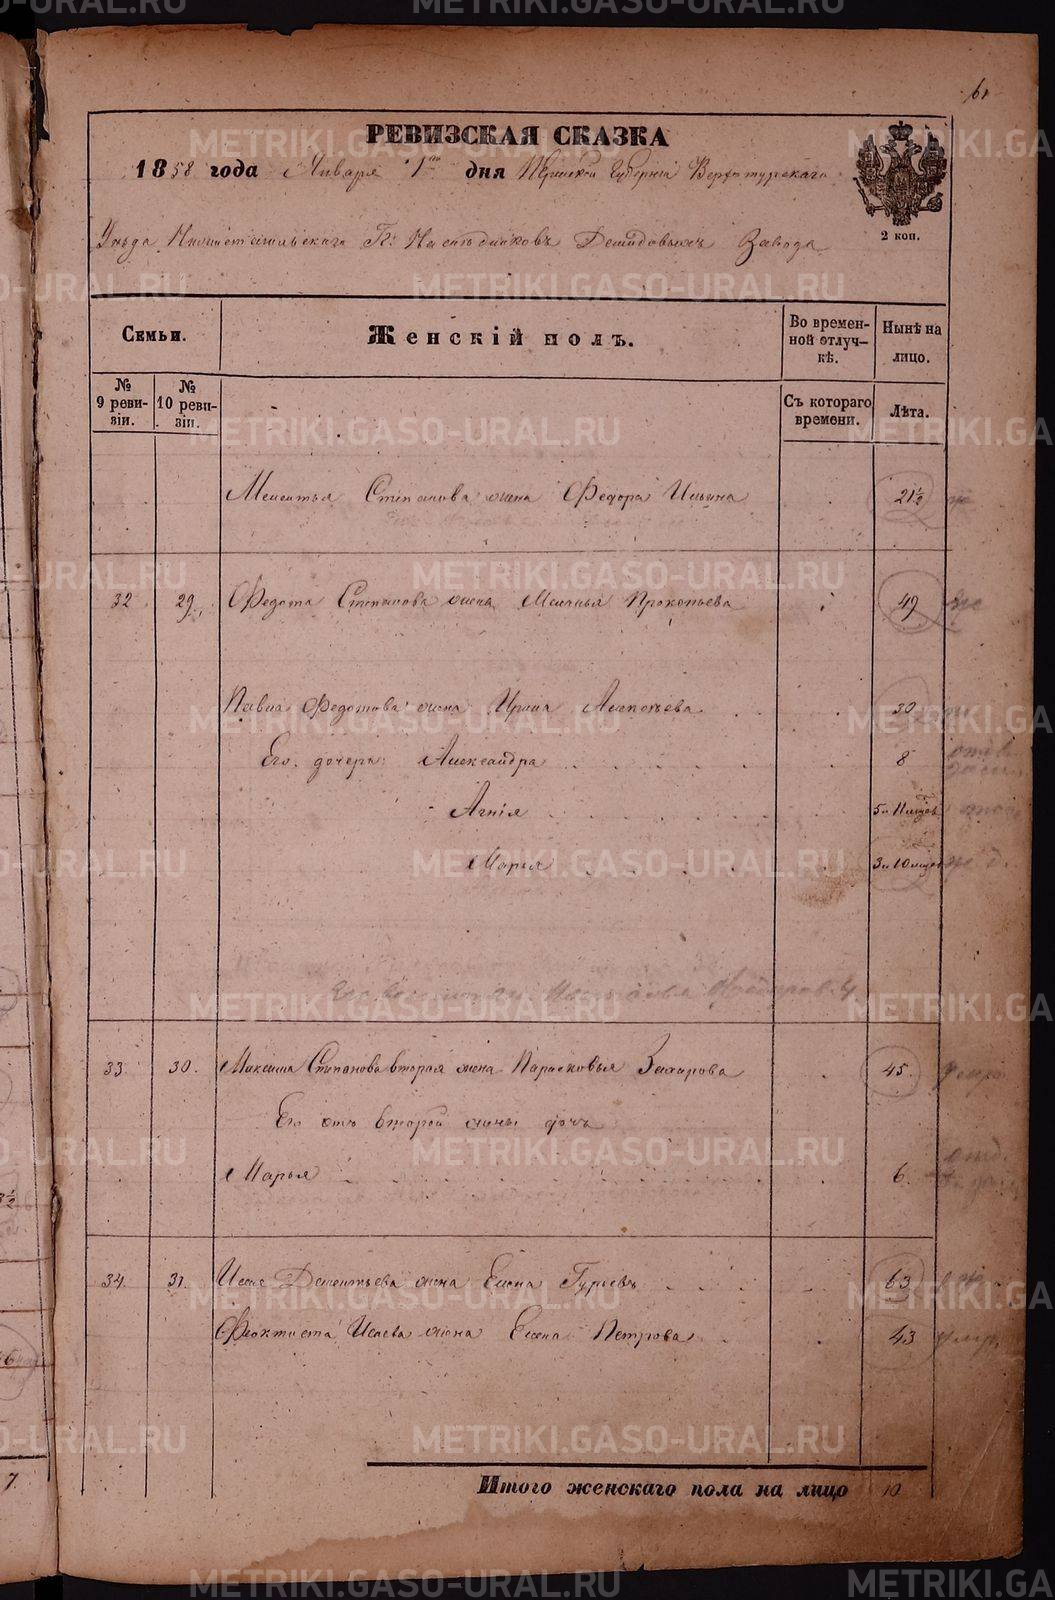 61
РЕВИЗСКАЯ СКАЗКА
1858 года Января 1го дня Пермской Губерніи Верхотурскаго
Уѣзда Нижнетагильскаго Гг: Наслѣдниковъ Демидовыхъ Завода
2 коп.
Семьи.
Женскій полъ.
Во временной отлучкѣ.
Нынѣ на лицо.
№ 9 ревизіи.
№ 10 ревизіи.
Съ котораго времени.
Лѣта.
Степанова жена Федора Ильина 21½
32 29. Федота Степанова жена Прокопьева 49
Павла Федотова жена Ирина Алексѣева 30
Его дочери: Александра 8
Агнія 5 и 11 мцовъ
Марья 3 и 10 мцовъ
33. 30. Максима Степанова вторая жена Парасковья Захарова 45.
Его отъ второй жены дочь
Марья 6.
34. 31. Дементьева жена Елена Гурьева 63
Феоктиста Исаева жена Елена Петрова 43
Итого женскаго пола на лицо 10
METRIKI.GASO-URAL.RU